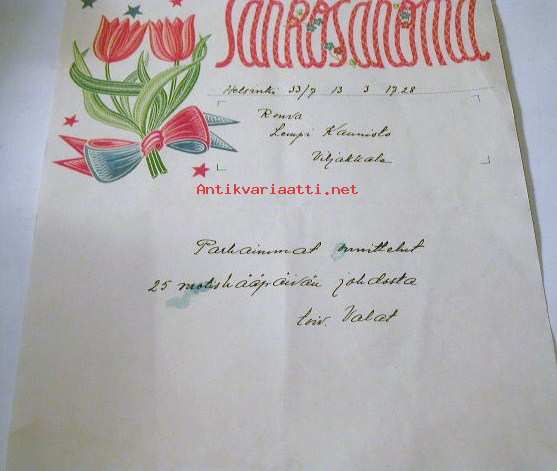 Sähkösanoma
Helsinki 33/7 13 3 17.28
Rouva
Lempi Kaunisto
Viljakkala
Antikvariaatti.net
Parhaimmat onnittelut
25 vuotishääpäivän johdosta
toiv. Valat